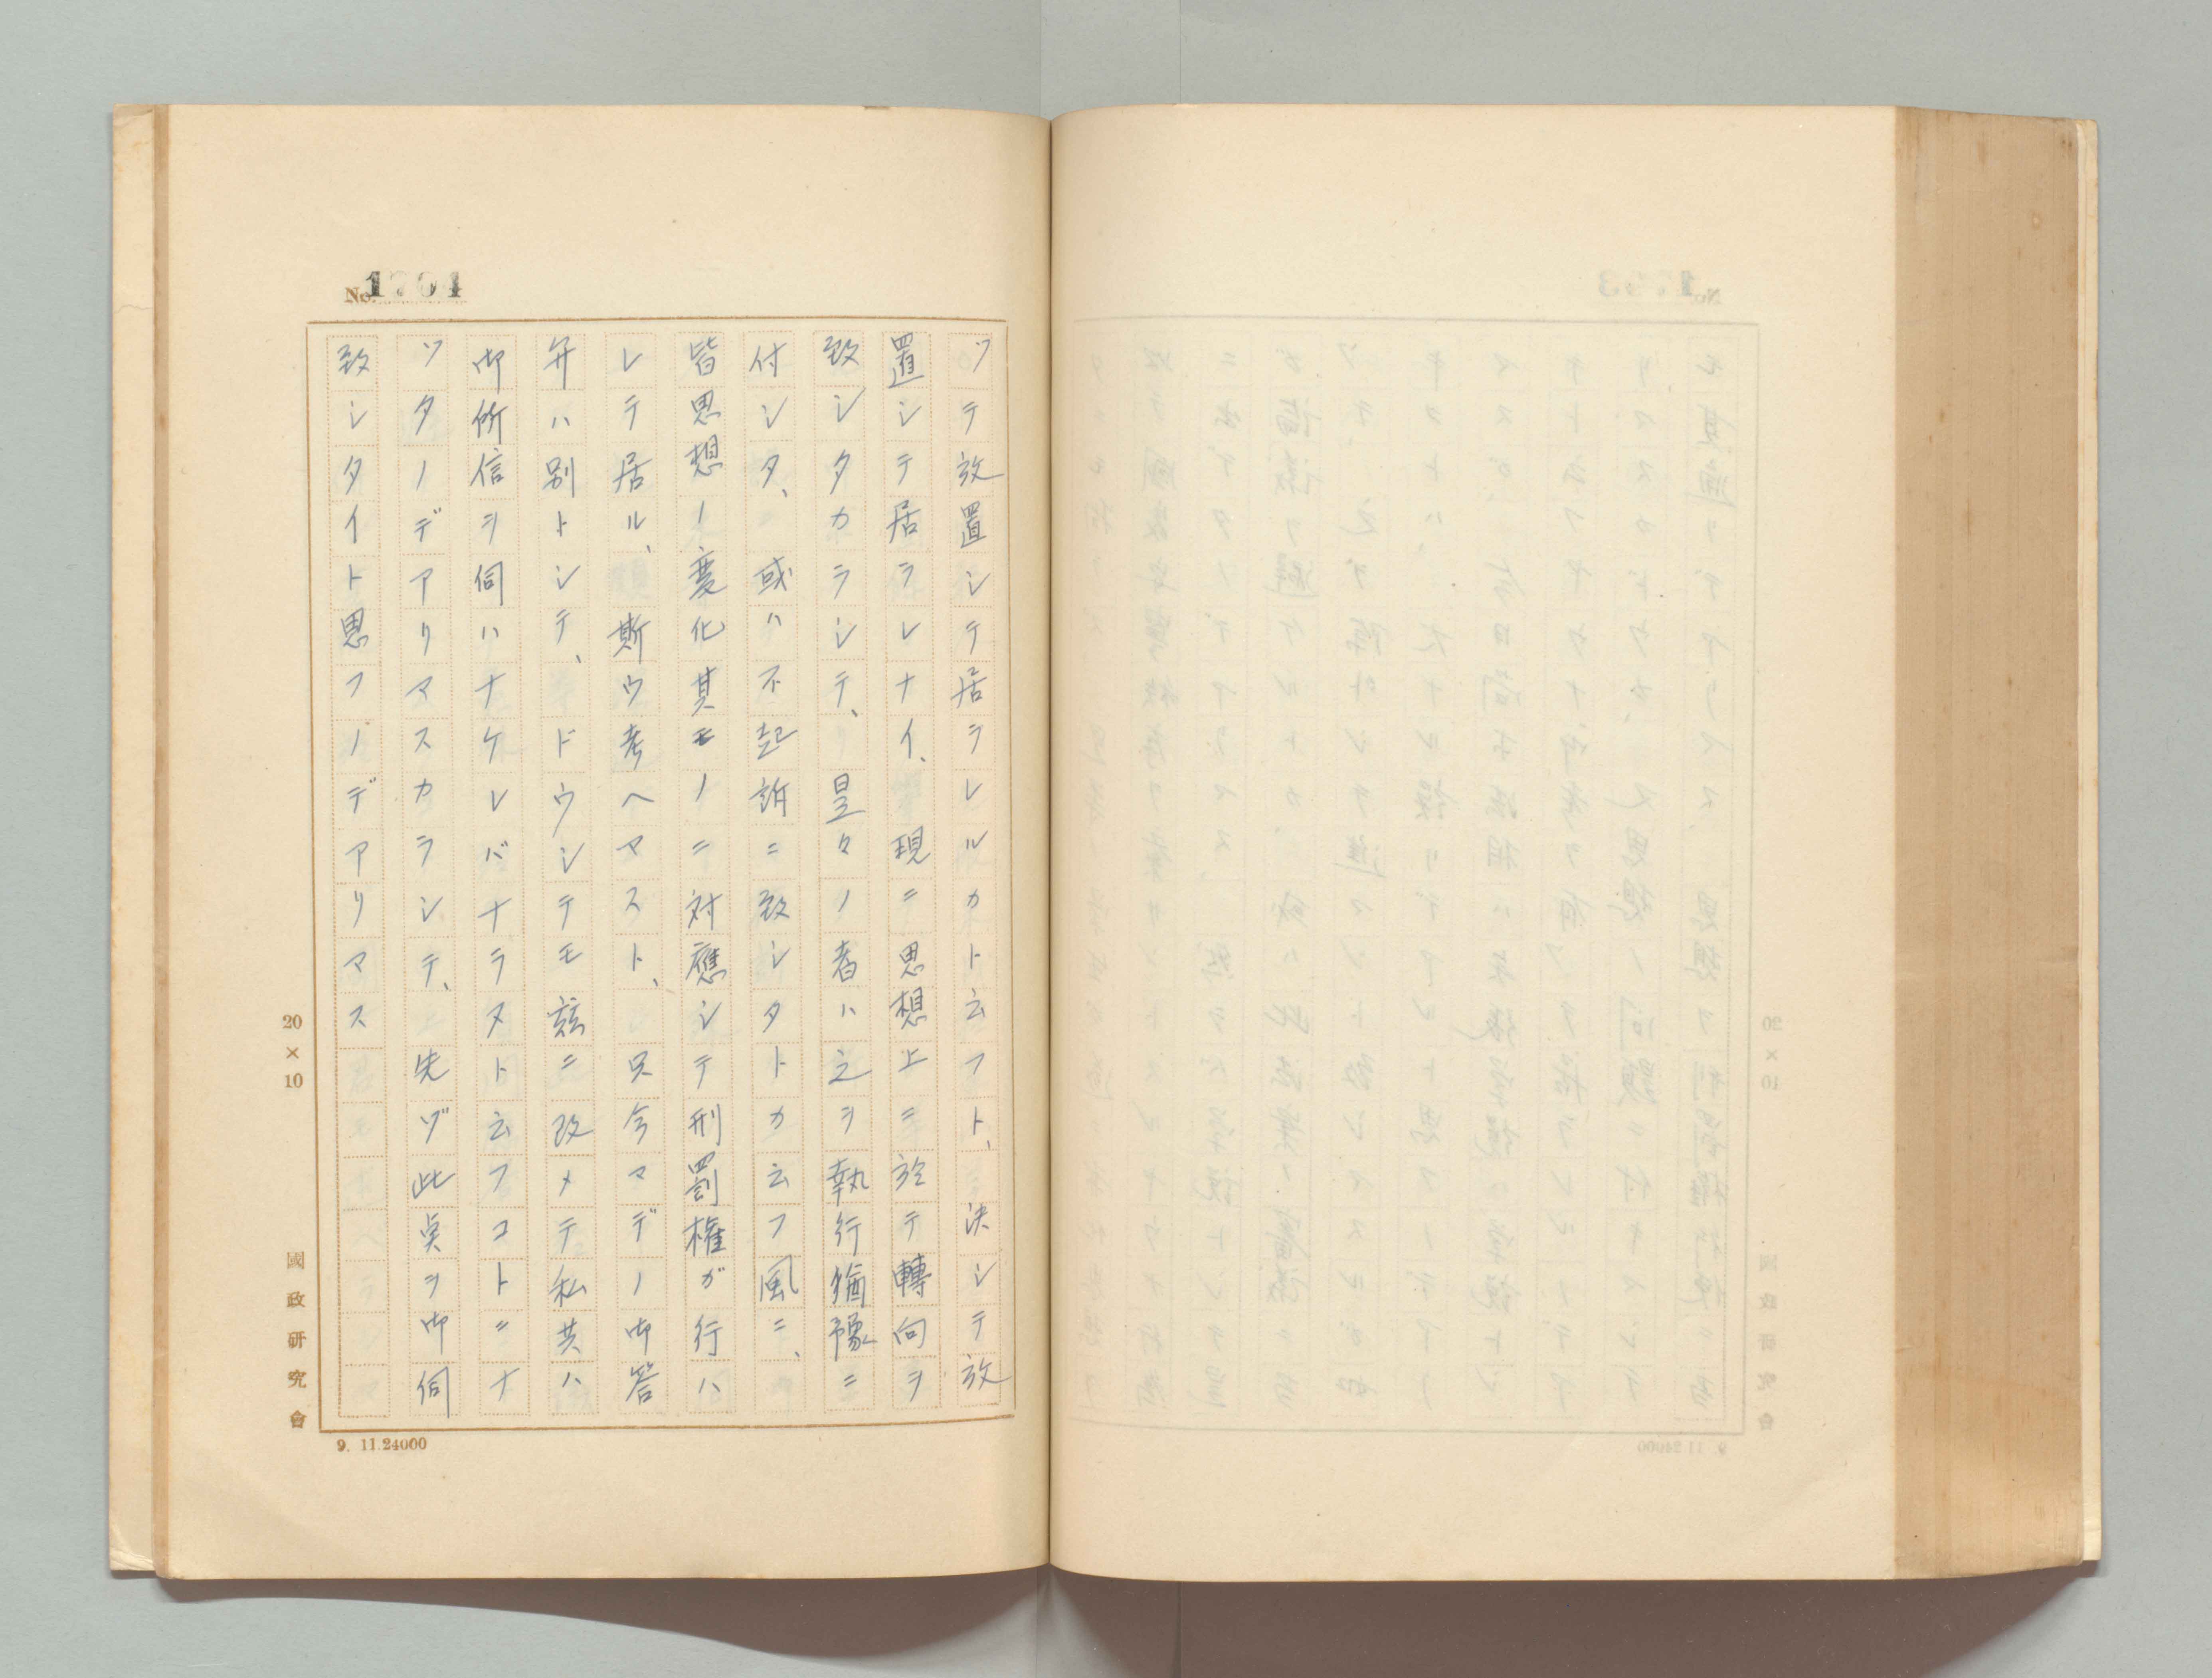 No. 1704
ツテ放置シテ居ラレルカト云フト、決シテ放
置シテ居ラレナイ、現ニ思想上ニ於テ轉向ヲ
致シタカラシテ、是々ノ者ハ之ヲ執行猶豫ニ
付シタ、或ハ不起訴ニ致シタトカ云フ風ニ、
皆思想ノ変化其モノニ対應シテ刑罰権ガ行ハ
レテ居ル、斯ウ考ヘマスト、只今マデノ御答
弁ハ別トシテ、ドウシテモ茲ニ改メテ私共ハ
御所信ヲ伺ハナケレバナラヌト云フコトニナ
ツタノデアリマスカラシテ、先ヅ此点ヲ御伺
致シタイト思フノデアリマス
20×10
國政研究會
9. 11.24000